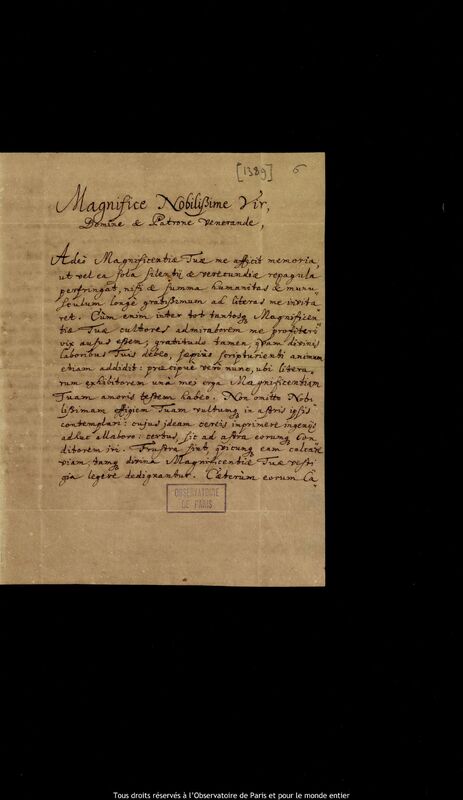 [1389] 6
Magnifice Nobilißime Vir,
Domine & Patrone Venerande,
Adeò Magnificentiæ Tuæ me afficit memoria,
ut vel ea sola silentij & verecundiæ repagula
perfringat, nisi & summa humanitas & munu
sculum longè gratißimum ad literas me invita
ret. Cùm enim inter tot tantosq Magnificen
tiæ Tuæ cultores admiratorem me profiteri
vix ausus essem; gratitudo tamen, qvam divinis
laboribus Tuis debeo, sæpius scripturienti animum
etiam addidit: præcipuè verò nunc, ubi litera
rum exhibitorem unà mei erga Magnificentiam
Tuam amoris testem habeo. Non omitto Nobi
lißimam effigiem Tuam vultumq in astris ipsis
contemplari: cujus ideam cereis imprimere ingenijs
adhuc allaboro: certus, sic ad astra eorumq Con
ditorem iri. Frustra sint, qvicunq eam calcare
viam tamq divina Magnificentiæ Tuæ vesti
gia legere dedignantur. Cæterùm eorum Ca
OBSERVATOIRE
DE PARIS
Tous droits réservés à l'Observatoire de Paris et pour le monde entier